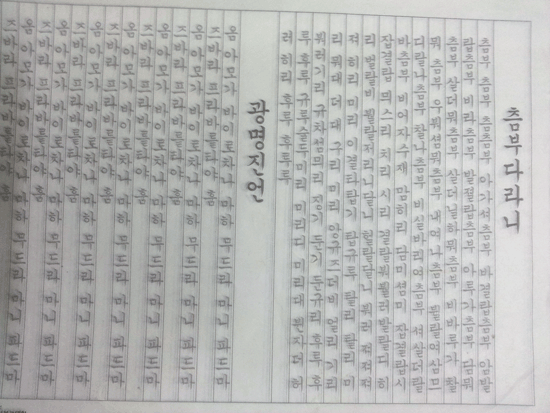 츰부다라니
츰부 츰부 츰츰부 아가셔츰부 바결랍츰부 암발
랍츰부 비라츰부 발결랍츰부 아루가츰부 담뭐
츰부 살더뭐츰부 살더닐하뭐츰부 비바루가찰
뭐 츰부 우버셤뭐츰부 내여나츰부 발랄여삼므
디랄나츰부 찰나츰부 비실바리여츰부 셔살더랄
바츰부 비어자수재 맘히리 담미셤미 잡결랍시
잡결랍 믜스리 치리 시리 결랄뷔뷜러발랄디 히
리 벌랄비 뷜랄저러니달니 헐랄달니 뭐러 져져져
져 히리 미리 이결타탑기 탑규루 탈리 탈리 미
리 뭐대 더대 구리 미리 앙규즈더비 얼리 기리
뷔러기리 규차섬믜리 징기 둔기 둔규리 후루 후
루 후루 규루술두미리 미리디 미리대 뷘자더 허
러 히리 후루 후루루
광명진언
옴 아모가 바이로차나 마하 무드라 마니 파드마
즈바라 프라바를타야 훔
옴 아모가 바이로차나 마하 무드라 마니 파드마
즈바라 프라바를타야 훔
옴 아모가 바이로차나 마하 무드라 마니 파드마
즈바라 프라바를타야 훔
옴 아모가 바이로차나 마하 무드라 마니 파드마
즈바라 프라바를타야 훔
옴 아모가 바이로차나 마하 무드라 마니 파드마
즈바라 프라바를타야 훔
옴 아모가 바이로차나 마하 무드라 마니 파드마
즈바라 프라바를타야 훔